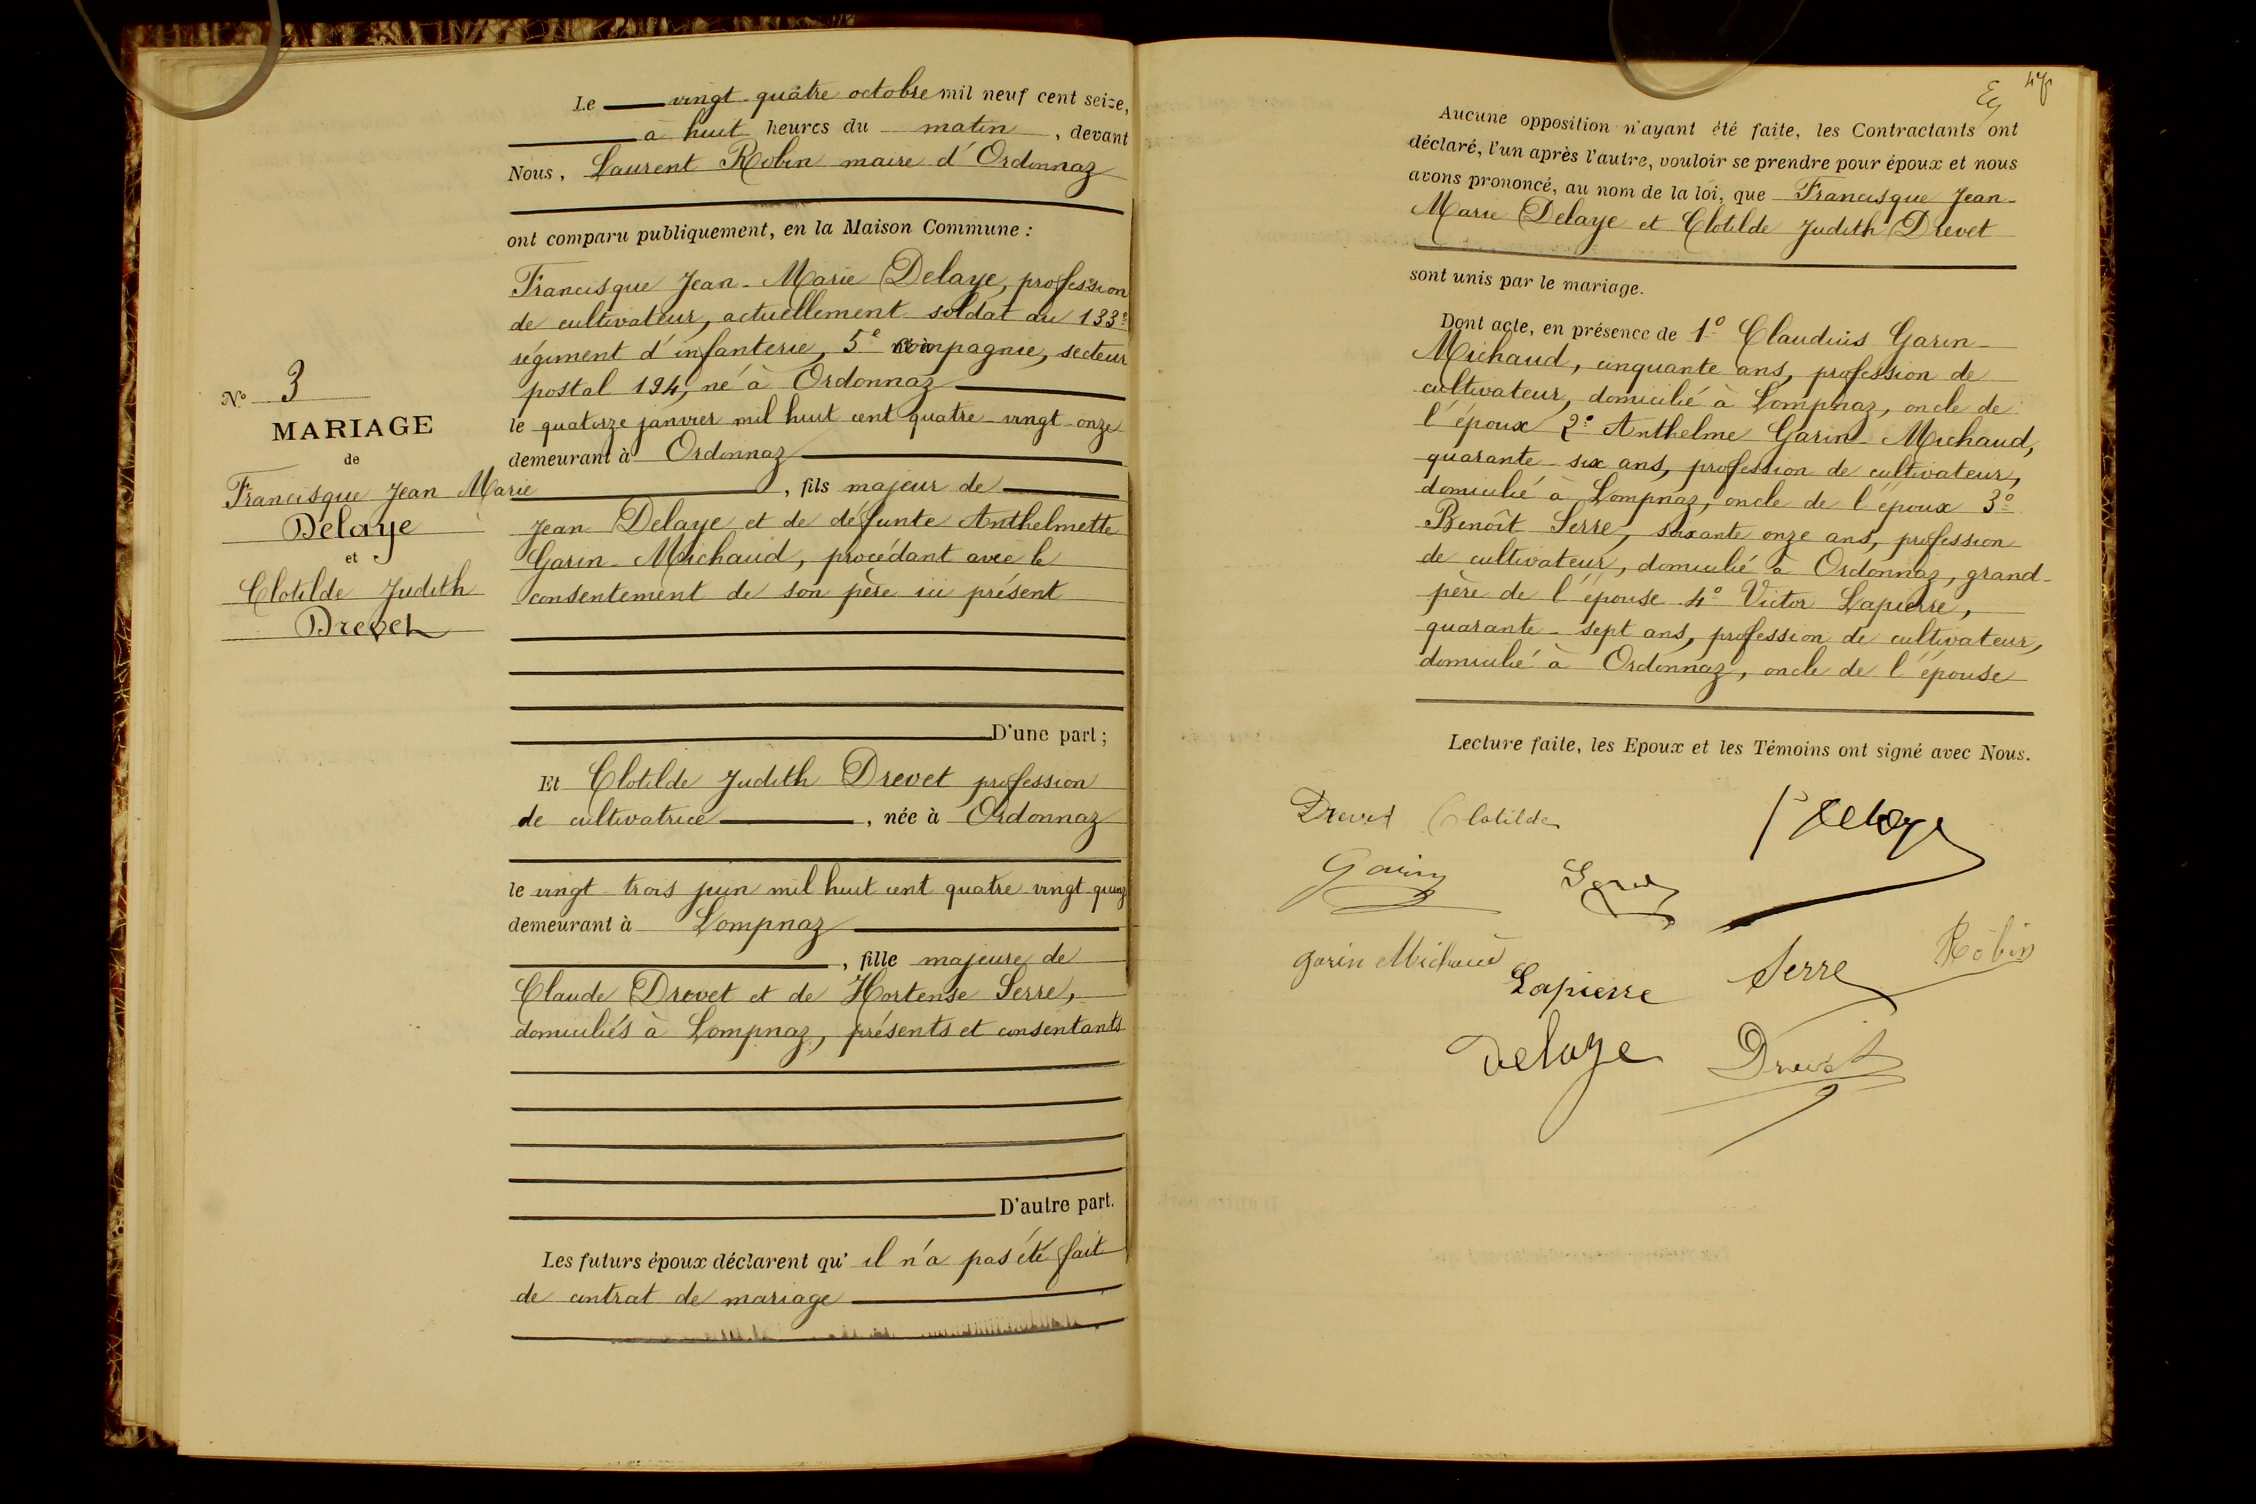 Le vingt-quatre octobre mil neuf cent seize,
à huit heures du matin, devant
Nous, Laurent Robin maire d'Ordonnaz
ont comparu publiquement, en la Maison Commune :
Francisque Jean-Marie Delaye, profession
de cultivateur, actuellement soldat au 133e
régiment d'infanterie, 5e compagnie, secteur
postal 194, né à Ordonnaz
le quatorze janvier mil huit cent quatre-vingt-onze
demeurant à Ordonnaz
, fils majeur de
Jean Delaye et de défunte Anthelmette
Garin-Michaud, procédant avec le
consentement de son père ici présent
D'une part ;
Et Clotilde Judith Drevet profession
de cultivatrice, née à Ordonnaz
le vingt-trois juin mil huit cent quatre-vingt-quinze
demeurant à Lompnaz
, fille majeure de
Claude Drevet et de Hortense Serre,
domiciliés à Lompnaz, présents et consentants
D'autre part.
Les futurs époux déclarent qu'il n'a pas été fait
de contrat de mariage
N° 3
MARIAGE
de
Francisque Jean Marie
Delaye
et
Clotilde Judith
Drevet
47
Aucune opposition n'ayant été faite, les Contractants ont
déclaré, l'un après l'autre, vouloir se prendre pour époux et nous
avons prononcé, au nom de la loi, que Francisque Jean-
Marie Delaye et Clotilde Judith Drevet
sont unis par le mariage.
Dont acte, en présence de 1° Claudius Garin-
Michaud, cinquante ans, profession de
cultivateur, domicilié à Lompnaz, oncle de
l'époux 2° Anthelme Garin-Michaud,
quarante-six ans, profession de cultivateur,
domicilié à Lompnaz, oncle de l'époux 3°
Benoît Serre, soixante onze ans, profession
de cultivateur, domicilié à Ordonnaz, grand-
père de l'épouse 4° Victor Lapierre,
quarante-sept ans, profession de cultivateur,
domicilié à Ordonnaz, oncle de l'épouse
Lecture faite, les Epoux et les Témoins ont signé avec Nous.
Drevet Clotilde
F Delaye
Garin
Garin Michaud
Lapierre
Serre
Robin
Delaye
Drevet